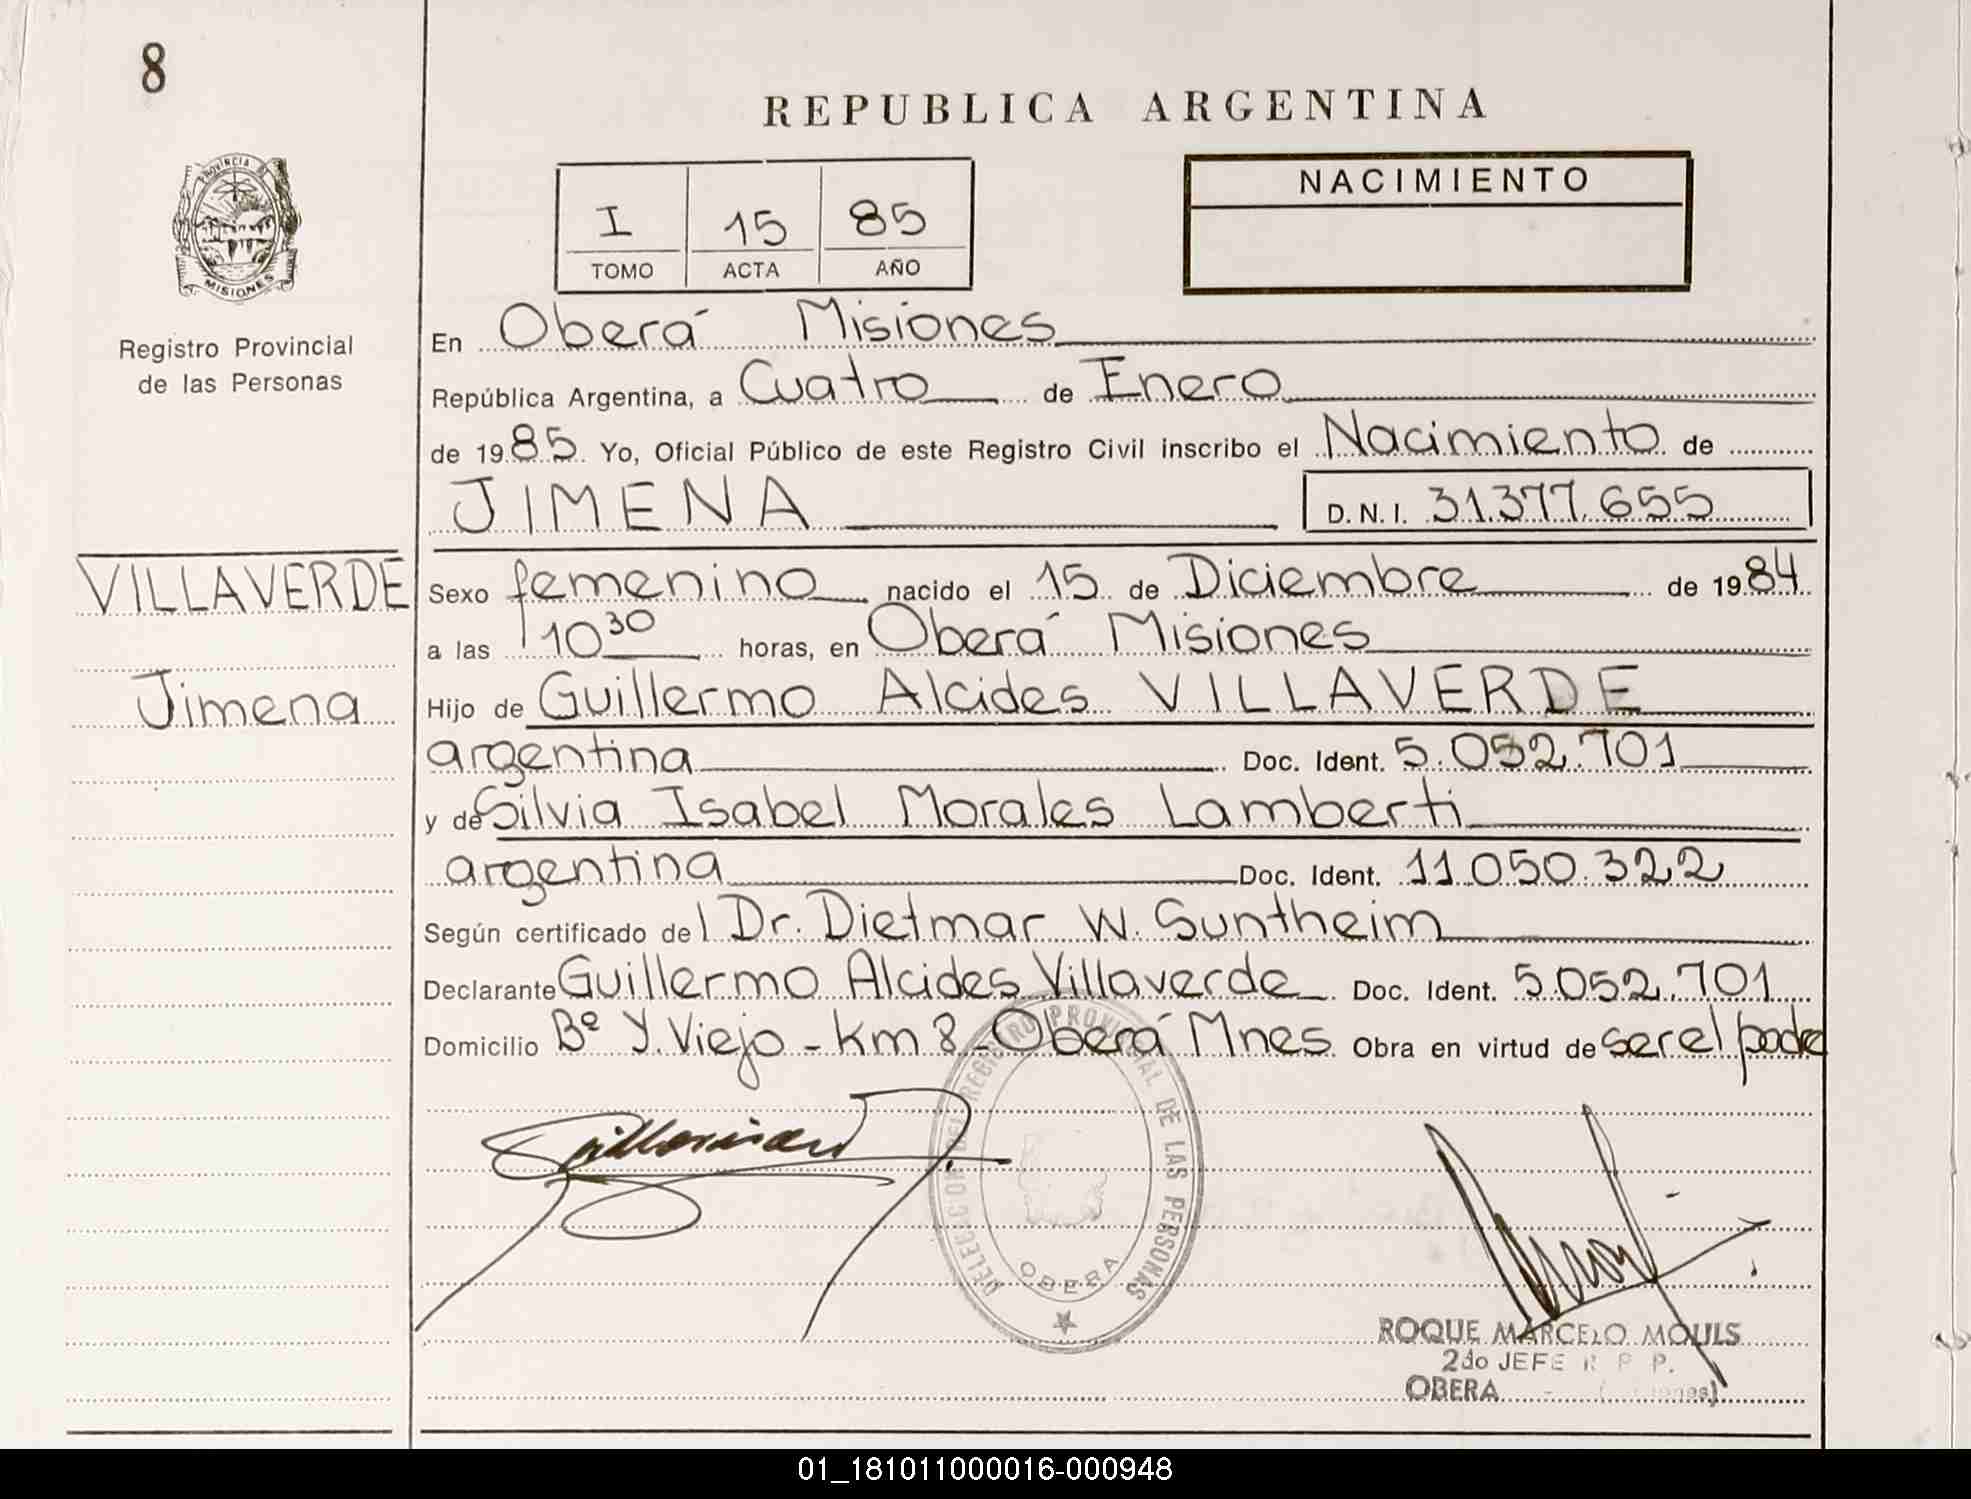 8
REPUBLICA ARGENTINA
PROVINCIA D
MISIONES
Registro Provincial
de las Personas
I 15 85
TOMO ACTA AÑO
NACIMIENTO
En Oberá Misiones
República Argentina, a Cuatro de Enero
de 1985 Yo, Oficial Público de este Registro Civil inscribo el Nacimiento de
JIMENA D.N.I. 31.377.655
VILLAVERDE
Jimena
Sexo femenino nacido el 15 de Diciembre de 1984
a las 10 30 horas, en Oberá Misiones
Hijo de Guillermo Alcides VILLAVERDE
argentina Doc. Ident. 5.052.701
y de Silvia Isabel Morales Lamberti
argentina Doc. Ident. 11.050.322
Según certificado del Dr. Dietmar W. Suntheim
Declarante Guillermo Alcides Villaverde Doc. Ident. 5.052.701
Domicilio Bº Y. Viejo - Km 8 - Oberá Mnes Obra en virtud de ser el padre
DELECCION DEL REGISTRO PROVINCIAL DE LAS PERSONAS
OBERA
ROQUE MARCELO MOULS
2do JEFE R P P.
OBERA
01_181011000016-000948